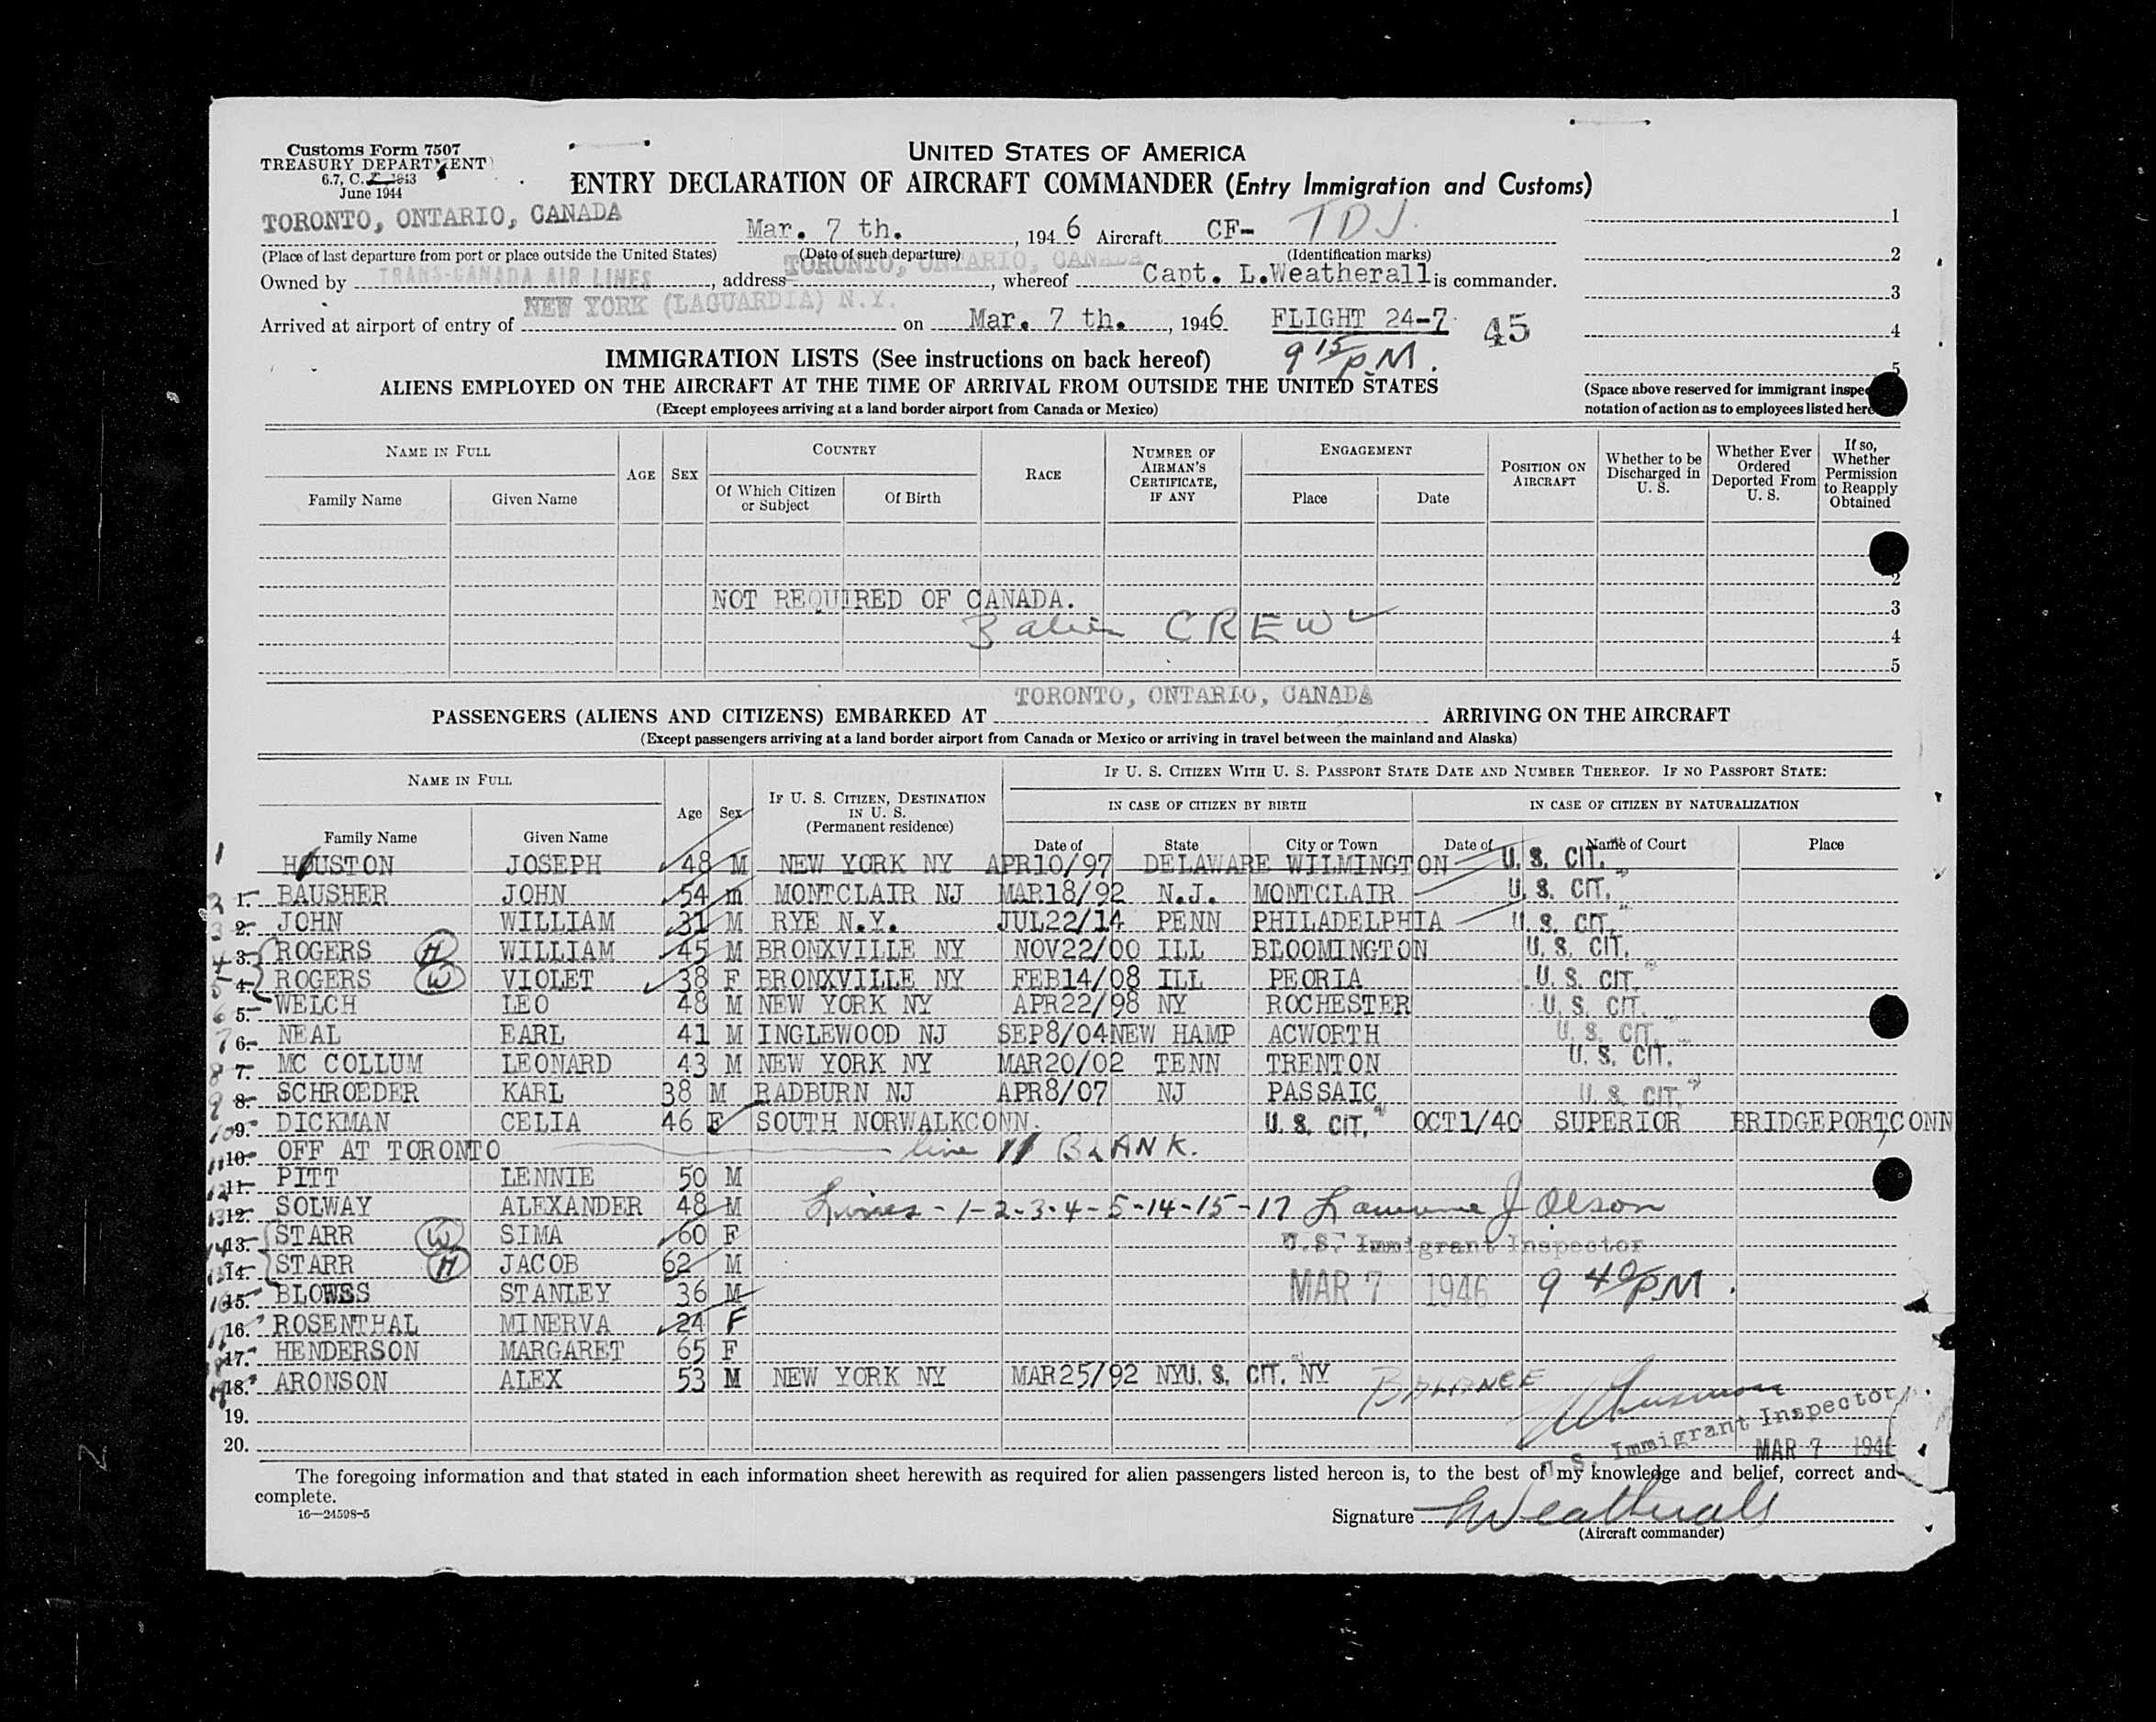 Customs Form 7507
TREASURY DEPARTMENT
June 1944
UNITED STATES OF AMERICA
ENTRY DECLARATION OF AIRCRAFT COMMANDER (Entry Immigration and Customs)
TORONTO, ONTARIO, CANADA Mar. 7 th. , 194 6 Aircraft CF- TDJ. 1
(Place of last departure from port or place outside the United States) (Date of such departure) (Identification marks) 2
Owned by TRANS-CANADA AIR LINES , address TORONTO, ONTARIO, CANADA , whereof Capt. L.Weatherall is commander. 3
Arrived at airport of entry of NEW YORK (LAGUARDIA) N.Y. on Mar. 7 th. , 1946 FLIGHT 24-7 45 4
9 15 PM. 5
IMMIGRATION LISTS (See instructions on back hereof)
ALIENS EMPLOYED ON THE AIRCRAFT AT THE TIME OF ARRIVAL FROM OUTSIDE THE UNITED STATES
(Except employees arriving at a land border airport from Canada or Mexico)
(Space above reserved for immigrant
notation of action as to employees listed
NAME IN FULL
Family Name Given Name
AGE SEX
COUNTRY
Of Which Citizen or Subject Of Birth
RACE
NUMBER OF AIRMAN'S CERTIFICATE, IF ANY
ENGAGEMENT
Place Date
POSITION ON AIRCRAFT
Whether to be Discharged in U. S.
Whether Ever Ordered Deported From U. S.
If so, Whether Permission to Reapply Obtained
2
NOT REQUIRED OF CANADA. 3
3 alien CREW 4
5
PASSENGERS (ALIENS AND CITIZENS) EMBARKED AT TORONTO, ONTARIO, CANADA ARRIVING ON THE AIRCRAFT
(Except passengers arriving at a land border airport from Canada or Mexico or arriving in travel between the mainland and Alaska)
NAME IN FULL
Family Name Given Name
Age Sex
IF U. S. CITIZEN, DESTINATION IN U. S. (Permanent residence)
IF U. S. CITIZEN WITH U. S. PASSPORT STATE DATE AND NUMBER THEREOF. IF NO PASSPORT STATE:
IN CASE OF CITIZEN BY BIRTH IN CASE OF CITIZEN BY NATURALIZATION
Date of State City or Town Date of Name of Court Place
1 HOUSTON JOSEPH 48 M NEW YORK NY APR10/97 DELAWARE WILMINGTON U. S. CIT.
2 1. BAUSHER JOHN 54 m MONTCLAIR NJ MAR18/92 N.J. MONTCLAIR U. S. CIT.
3 2. JOHN WILLIAM 31 M RYE N.Y. JUL22/14 PENN PHILADELPHIA U. S. CIT.
4 3. ROGERS H WILLIAM 45 M BRONXVILLE NY NOV22/00 ILL BLOOMINGTON U. S. CIT.
5 4. ROGERS W VIOLET 38 F BRONXVILLE NY FEB14/08 ILL PEORIA U. S. CIT.
6 5. WELCH LEO 48 M NEW YORK NY APR22/98 NY ROCHESTER U. S. CIT.
7 6. NEAL EARL 41 M INGLEWOOD NJ SEP8/04 NEW HAMP ACWORTH U. S. CIT.
8 7. MC COLLUM LEONARD 43 M NEW YORK NY MAR20/02 TENN TRENTON U. S. CIT.
9 8. SCHROEDER KARL 38 M RADBURN NJ APR8/07 NJ PASSAIC U. S. CIT.
10 9. DICKMAN CELIA 46 F SOUTH NORWALKCONN. U. S. CIT. OCT1/40 SUPERIOR BRIDGEPORT,CONN
11 10. OFF AT TORONTO line 11 BLANK.
12 11. PITT LENNIE 50 M
13 12. SOLWAY ALEXANDER 48 M Lines - 1-2-3-4-5-14-15-17 J Olson
14 13. STARR W SIMA 60 F U.S. Immigrant Inspector
15 14. STARR H JACOB 62 M MAR 7 1946 9 40 PM.
16 15. STANLEY 36 M
17 16. ROSENTHAL MINERVA 24 F
18 17. HENDERSON MARGARET 65 F
19 18. ARONSON ALEX 53 M NEW YORK NY MAR25/92 NY U. S. CIT. NY BALANCE
19. U. S. Immigrant Inspector
20. MAR 7 1946
The foregoing information and that stated in each information sheet herewith as required for alien passengers listed hereon is, to the best of my knowledge and belief, correct and
complete.
16—24598-5
Signature Weatherall
(Aircraft commander)